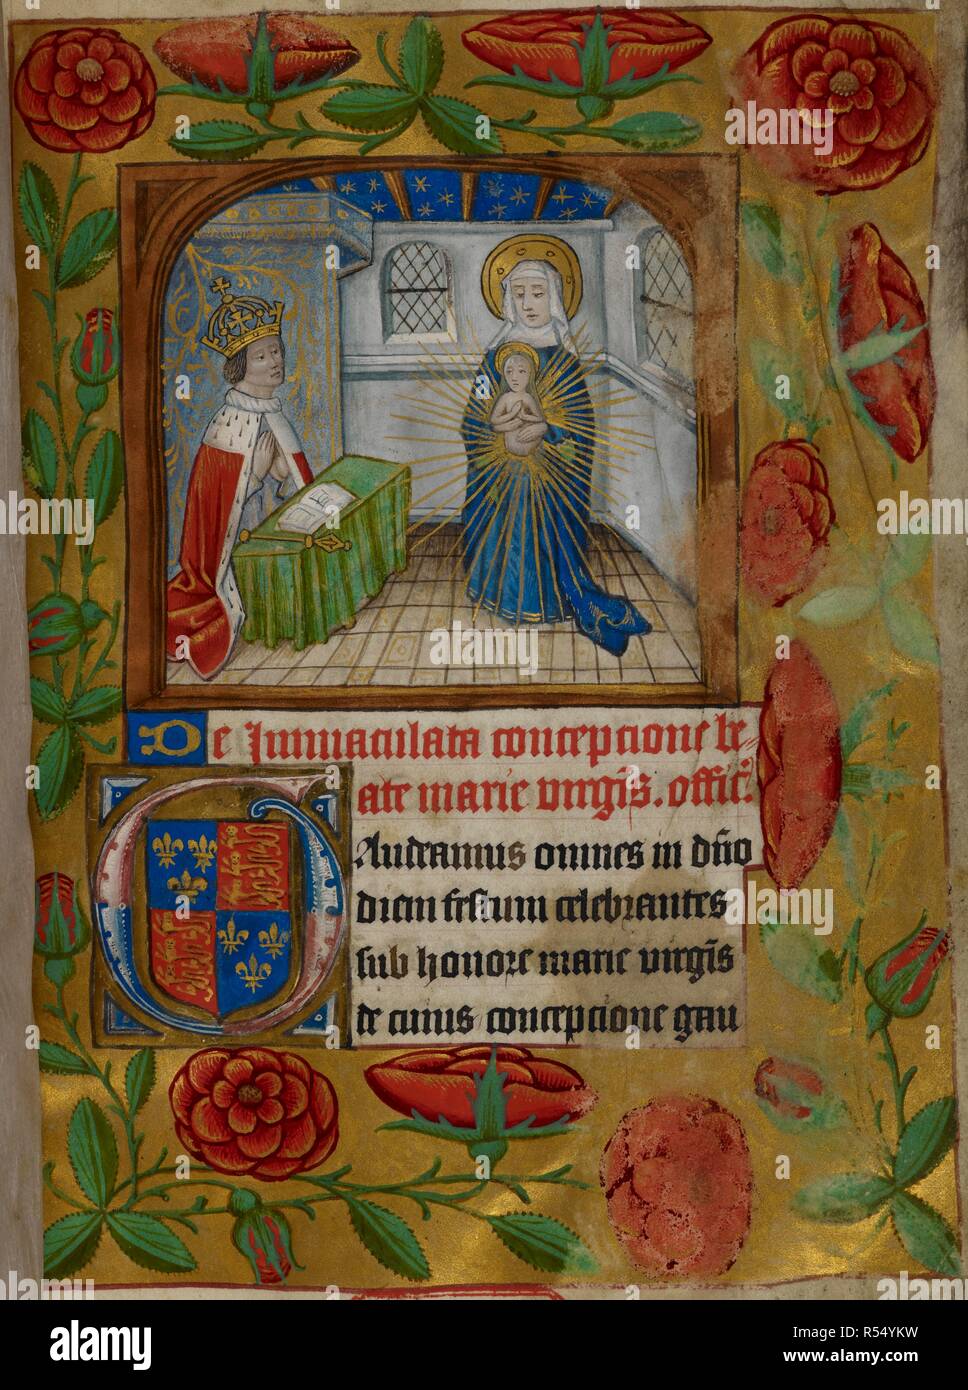 De Immaculata concepcione be-
ate marie virgīs. offic̄.
Gaudeamus omnes in dño
diem festum celebrantes
sub honore marie virgīs
de cuius concepcione gau
alamy
Image ID: R54YKW
www.alamy.com